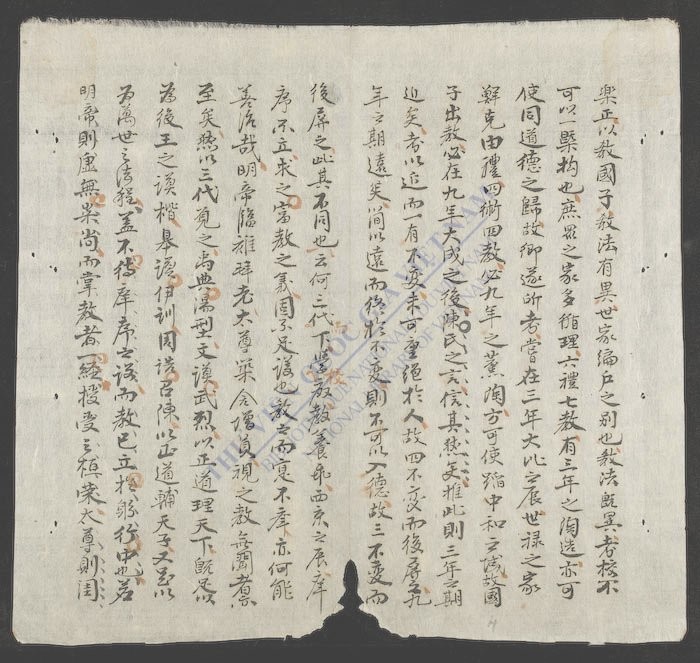 樂正以教國子教法有異世家編户之别也教法既異者校不
可以一槩拘也庶衆之家多循理六禮七教有三年之陶造亦可
使同道德之歸故鄉遂所考嘗在三年大比之辰世禄之家
鮮克由禮四術四教必九年之薰陶方可使蹈中和之域故國
子出教必在九年大成之後陳氏之言信其然矣推此則三年之期
近矣者以近而一有不变未可遽絕於人故四不变而後屏之九
年之期遠矣簡以遠而終於不变則不可以入德故三不变而
後屏之此其不同也云何三代下學教養乖西京之辰庠
序不立求之富教之義固不足議也教之而寔不庠亦何能
善治哉明帝臨雍拜老太尊樂舍增員視之教無聞者
至矣然以三代覓之禹典湯型文謨武烈以正道理天下既足以
為後王之謨楷畢訓伊訓周誥召陳以正道輔天子又密以
為萬世之法程盖不待庠序之設而教已立於躬行中也若
明帝則虚無是尚而掌教者一經授受之桓榮太尊則